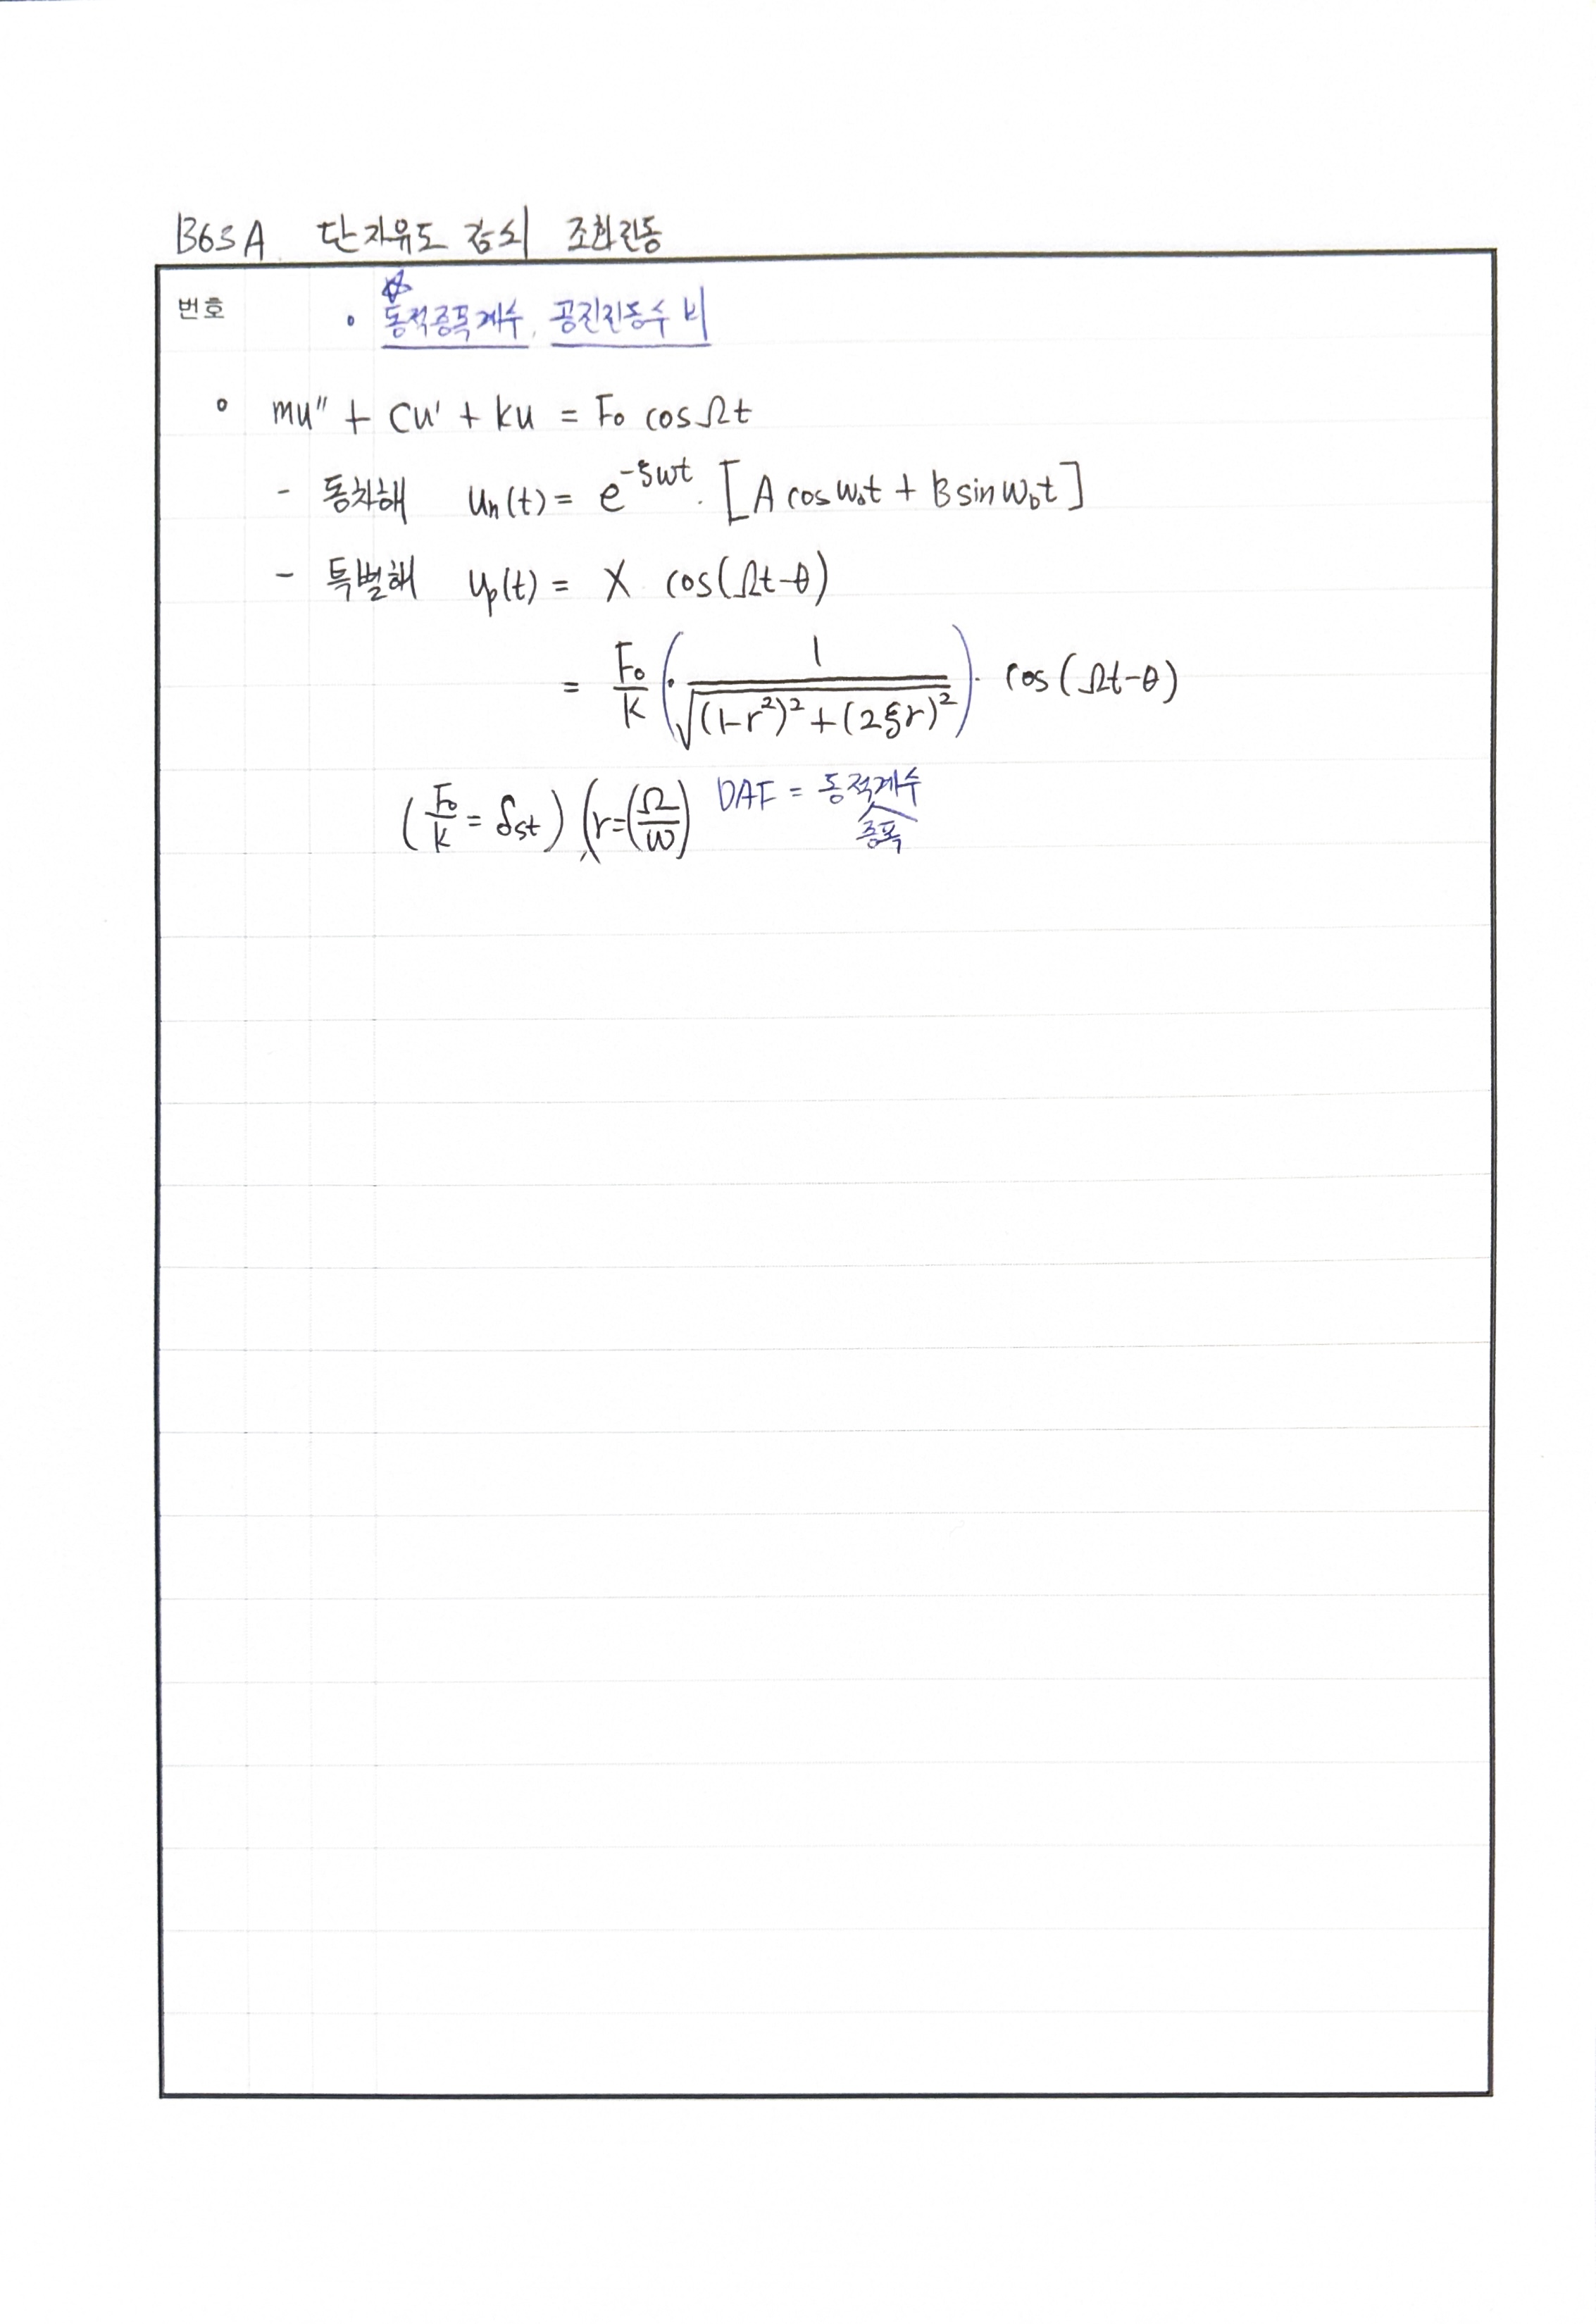 B63A 단자유도 감쇠 조화진동
번호
☆
• 동적증폭계수, 공진진동수 비
∘ mu'' + cu' + ku = F₀ cosΩt
- 동차해 uₕ(t) = e^(-ξωt) · [A cos ω_D t + B sin ω_D t]
- 특별해 u_p(t) = X cos(Ωt-θ)
= F₀/k (· 1/√((1-r²)² + (2ξr)²)) · cos(Ωt-θ)
(F₀/k = δst) (r=(Ω/ω) DAF = 동적계수
증폭